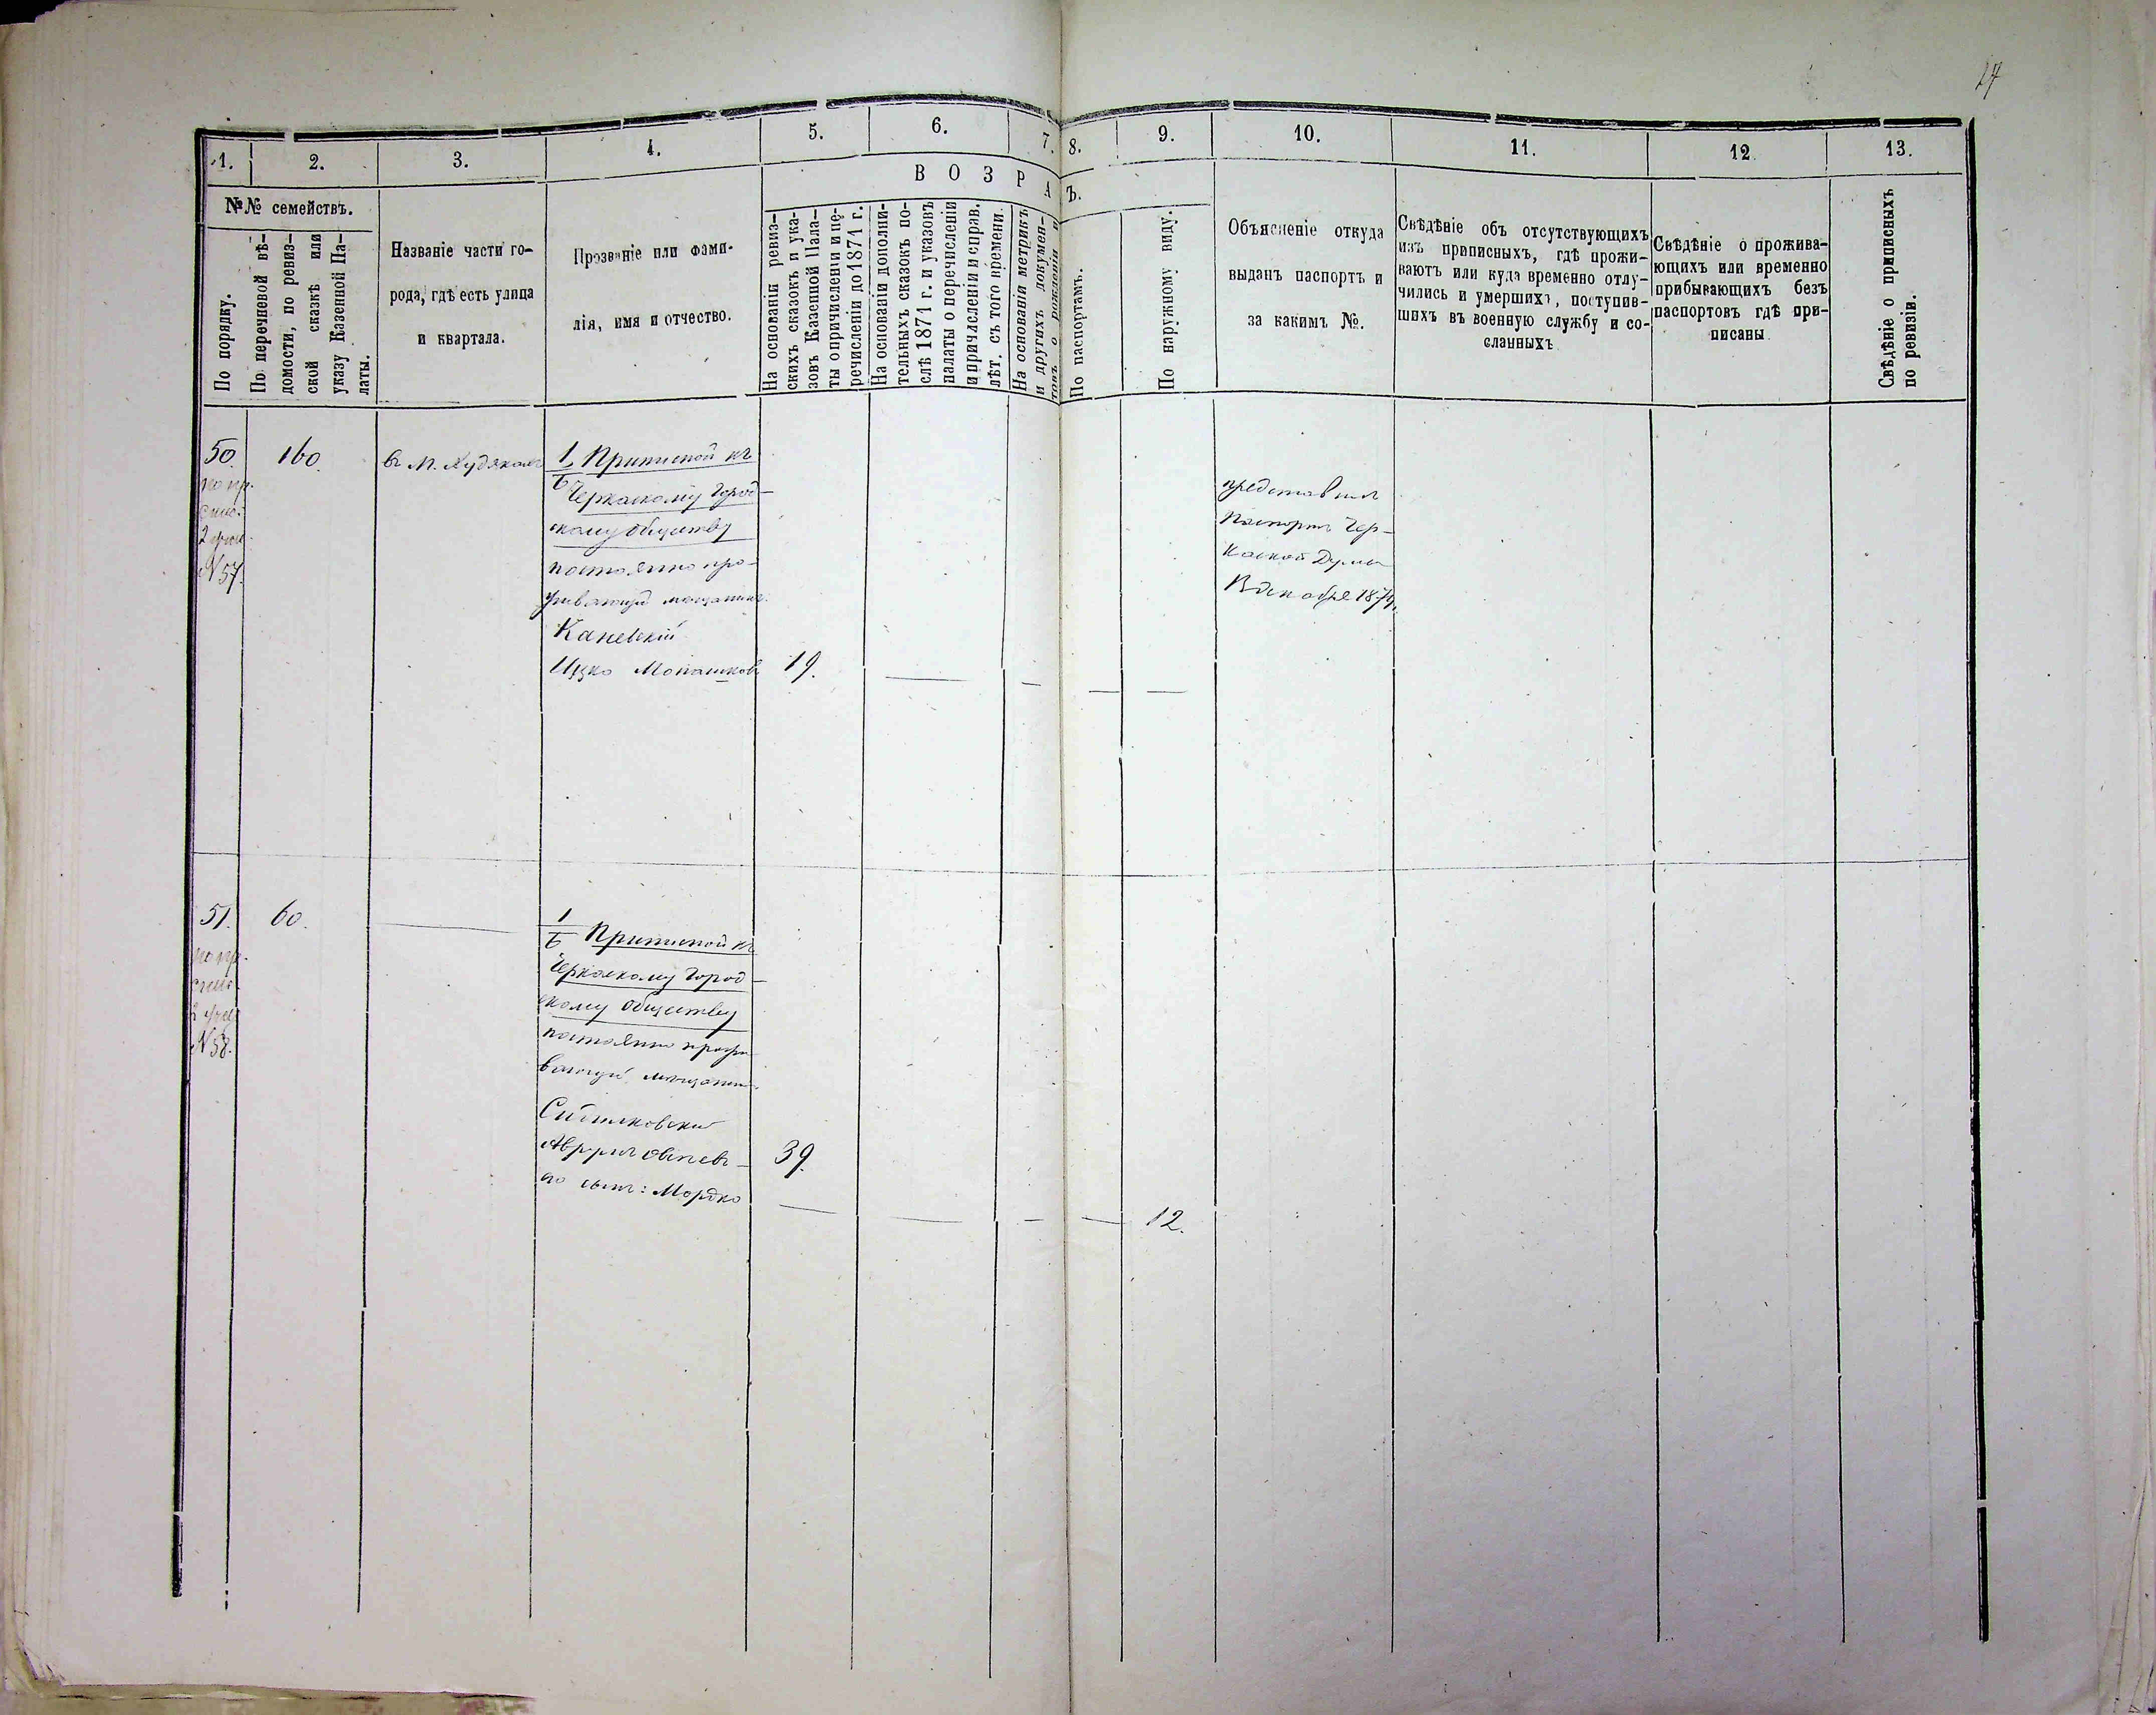 27
1.
2.
3.
4.
5.
6.
7.
8.
9.
10.
11.
12
13.
№№ семействъ.
По порядку.
По перечневой вѣ-
домости, по ревиз-
ской сказкѣ или
указу Казенной Па-
латы.
Названіе части го-
рода, гдѣ есть улица
и квартала.
Прозваніе или фами-
лія, имя и отчество.
ВОЗРА
Ъ.
На основаніи ревиз-
скихъ сказокъ и ука-
зовъ Казенной Пала-
ты опричисленіи и пе-
речисленіи до 1871 г.
На основаніи дополни-
тельныхъ сказокъ по-
слѣ 1871 г. и указовъ
палаты о перечисленіи
и причисленіи и справ.
лѣт. съ того времени.
На основаніи метрикъ
и другихъ докумен-
товъ о рожденіи и
По паспортамъ.
По наружному виду.
Объясненіе откуда
выданъ паспортъ и
за какимъ №.
Свѣдѣніе объ отсутствующихъ
изъ приписныхъ, гдѣ прожи-
ваютъ или куда временно отлу-
чились и умершихъ, поступив-
шихъ въ военную службу и со-
сланныхъ
Свѣдѣніе о прожива-
ющихъ или временно
прибывающихъ безъ
паспортовъ гдѣ при-
писаны
Свѣдѣніе о приписныхъ
по ревизіи.
50.
по пр.
спис.
2 учас.
№ 57.
160.
въ М. Худякахъ
1/Б Приписной къ
Черкаскому Город-
скому Обществу
постоянно про-
живающій мещанинъ
Каневскій
Ицко Монашковъ 19.
представилъ
Паспортъ Чер-
каской Думы
В декабре 1874
51.
по пр.
спис.
2 учас
№ 58.
60.
1/Б Приписной къ
Черкаскому Город-
скому Обществу
постоянно прожи-
вающій мещанинъ
Аврумъ 39.
го сынъ: Мордко
12.